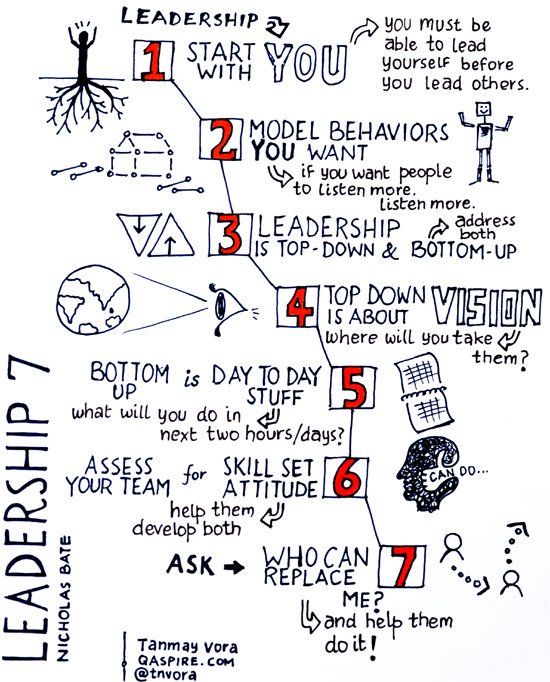 LEADERSHIP
1 START
WITH YOU
you must be
able to lead
yourself before
you lead others.
2 MODEL BEHAVIORS
YOU WANT
if you want people
to listen more,
listen more.
3 LEADERSHIP
IS TOP-DOWN & BOTTOM-UP
address
both
4 TOP DOWN
IS ABOUT VISION
where will you take
them?
BOTTOM
UP is DAY TO DAY
STUFF 5
what will you do in
next two hours/days?
ASSESS
YOUR TEAM for SKILL SET
ATTITUDE 6
help them
develop both
CAN DO...
ASK WHO CAN
REPLACE
ME? 7
and help them
do it!
LEADERSHIP 7
NICHOLAS BATE
Tanmay Vora
QASPIRE.COM
@tnvora